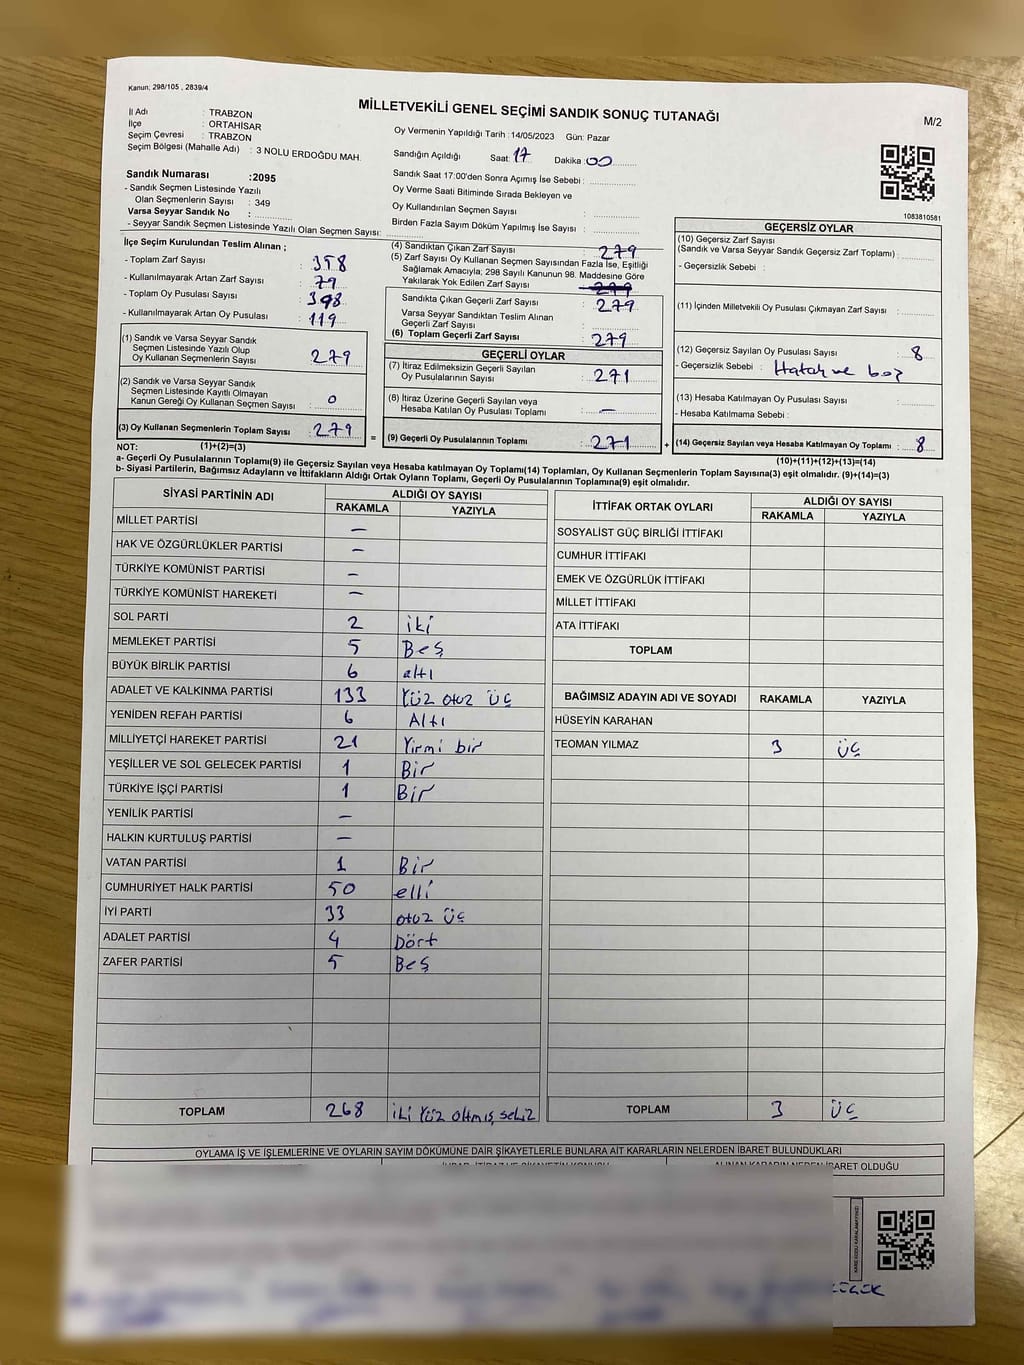 Kanun; 298/105 , 2839/4
MİLLETVEKİLİ GENEL SEÇİMİ SANDIK SONUÇ TUTANAĞI
M/2
İl Adı : TRABZON
İlçe : ORTAHİSAR
Seçim Çevresi : TRABZON
Seçim Bölgesi (Mahalle Adı) : 3 NOLU ERDOĞDU MAH.
Oy Vermenin Yapıldığı Tarih :14/05/2023 Gün: Pazar
Sandığın Açıldığı Saat: 17 Dakika: 00
Sandık Saat 17:00'den Sonra Açımış İse Sebebi :
Oy Verme Saati Bitiminde Sırada Bekleyen ve
Oy Kullandırılan Seçmen Sayısı :
Birden Fazla Sayım Döküm Yapılmış İse Sayısı :
Sandık Numarası :2095
- Sandık Seçmen Listesinde Yazılı
Olan Seçmenlerin Sayısı : 349
Varsa Seyyar Sandık No :
- Seyyar Sandık Seçmen Listesinde Yazılı Olan Seçmen Sayısı:
1083810581
İlçe Seçim Kurulundan Teslim Alınan ;
- Toplam Zarf Sayısı : 358
- Kullanılmayarak Artan Zarf Sayısı : 79
- Toplam Oy Pusulası Sayısı : 398
- Kullanılmayarak Artan Oy Pusulası : 119
(1) Sandık ve Varsa Seyyar Sandık
Seçmen Listesinde Yazılı Olup
Oy Kullanan Seçmenlerin Sayısı : 279
(2) Sandık ve Varsa Seyyar Sandık
Seçmen Listesinde Kayıtlı Olmayan
Kanun Gereği Oy Kullanan Seçmen Sayısı : 0
(3) Oy Kullanan Seçmenlerin Toplam Sayısı : 279
(1)+(2)=(3)
(4) Sandıktan Çıkan Zarf Sayısı : 279
(5) Zarf Sayısı Oy Kullanan Seçmen Sayısından Fazla İse, Eşitliği
Sağlamak Amacıyla; 298 Sayılı Kanunun 98. Maddesine Göre
Yakılarak Yok Edilen Zarf Sayısı : 279
Sandıkta Çıkan Geçerli Zarf Sayısı : 279
Varsa Seyyar Sandıktan Teslim Alınan
Geçerli Zarf Sayısı :
(6) Toplam Geçerli Zarf Sayısı : 279
GEÇERLİ OYLAR
(7) İtiraz Edilmeksizin Geçerli Sayılan
Oy Pusulalarının Sayısı : 271
(8) İtiraz Üzerine Geçerli Sayılan veya
Hesaba Katılan Oy Pusulası Toplamı : —
= (9) Geçerli Oy Pusulalarının Toplamı : 271 +
GEÇERSİZ OYLAR
(10) Geçersiz Zarf Sayısı
(Sandık ve Varsa Seyyar Sandık Geçersiz Zarf Toplamı) :
- Geçersizlik Sebebi :
(11) İçinden Milletvekili Oy Pusulası Çıkmayan Zarf Sayısı :
(12) Geçersiz Sayılan Oy Pusulası Sayısı : 8
- Geçersizlik Sebebi : Hatalı ve boş
(13) Hesaba Katılmayan Oy Pusulası Sayısı :
- Hesaba Katılmama Sebebi :
(14) Geçersiz Sayılan veya Hesaba Katılmayan Oy Toplamı : 8
(10)+(11)+(12)+(13)=(14)
NOT:
a- Geçerli Oy Pusulalarının Toplamı(9) ile Geçersiz Sayılan veya Hesaba katılmayan Oy Toplamı(14) Toplamları, Oy Kullanan Seçmenlerin Toplam Sayısına(3) eşit olmalıdır. (9)+(14)=(3)
b- Siyasi Partilerin, Bağımsız Adayların ve İttifakların Aldığı Ortak Oyların Toplamı, Geçerli Oy Pusulalarının Toplamına(9) eşit olmalıdır.
SİYASİ PARTİNİN ADI ALDIĞI OY SAYISI
RAKAMLA YAZIYLA
MİLLET PARTİSİ —
HAK VE ÖZGÜRLÜKLER PARTİSİ —
TÜRKİYE KOMÜNİST PARTİSİ —
TÜRKİYE KOMÜNİST HAREKETİ —
SOL PARTİ 2 iki
MEMLEKET PARTİSİ 5 Beş
BÜYÜK BİRLİK PARTİSİ 6 altı
ADALET VE KALKINMA PARTİSİ 133 Yüz otuz üç
YENİDEN REFAH PARTİSİ 6 Altı
MİLLİYETÇİ HAREKET PARTİSİ 21 Yirmi bir
YEŞİLLER VE SOL GELECEK PARTİSİ 1 Bir
TÜRKİYE İŞÇİ PARTİSİ 1 Bir
YENİLİK PARTİSİ —
HALKIN KURTULUŞ PARTİSİ —
VATAN PARTİSİ 1 Bir
CUMHURİYET HALK PARTİSİ 50 elli
İYİ PARTİ 33 otuz üç
ADALET PARTİSİ 4 Dört
ZAFER PARTİSİ 5 Beş
TOPLAM 268 iki Yüz altmış sekiz
İTTİFAK ORTAK OYLARI ALDIĞI OY SAYISI
RAKAMLA YAZIYLA
SOSYALİST GÜÇ BİRLİĞİ İTTİFAKI
CUMHUR İTTİFAKI
EMEK VE ÖZGÜRLÜK İTTİFAKI
MİLLET İTTİFAKI
ATA İTTİFAKI
TOPLAM
BAĞIMSIZ ADAYIN ADI VE SOYADI RAKAMLA YAZIYLA
HÜSEYİN KARAHAN
TEOMAN YILMAZ 3 üç
TOPLAM 3 üç
OYLAMA İŞ VE İŞLEMLERİNE VE OYLARIN SAYIM DÖKÜMÜNE DAİR ŞİKAYETLERLE BUNLARA AİT KARARLARIN NELERDEN İBARET BULUNDUKLARI
ALINAN KARARIN NEDEN İBARET OLDUĞU